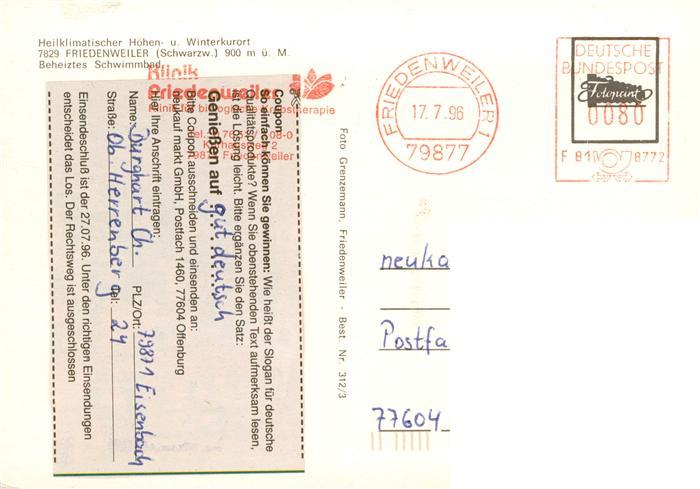 Heilklimatischer Höhen- u. Winterkurort
7829 FRIEDENWEILER (Schwarzw.) 900 m ü. M.
Beheiztes Schwimmbad
Klinik
Friedenweiler
Coupon
So einfach können Sie gewinnen: Wie heißt der Slogan für deutsche
Qualitätsprodukte? Wenn Sie obenstehenden Text aufmerksam lesen,
ist die Lösung leicht. Bitte ergänzen Sie den Satz:
Genießen auf gut deutsch
Bitte Coupon ausschneiden und einsenden an:
neukauf markt GmbH, Postfach 1460, 77604 Offenburg
Hier Ihre Anschrift eintragen:
Name: Burghart Ch. PLZ/Ort: 79871 Eisenbach
Straße: Ob. Herrenberg 24 Tel:
Einsendeschluß ist der 27.07.96. Unter den richtigen Einsendungen
entscheidet das Los. Der Rechtsweg ist ausgeschlossen
Foto Grenzemann, Friedenweiler - Best. Nr. 312/3
FRIEDENWEILER 1
17.7.96
79877
DEUTSCHE
BUNDESPOST
Fotopoint
0080
F 81 8772
neuka
Postfa
77604